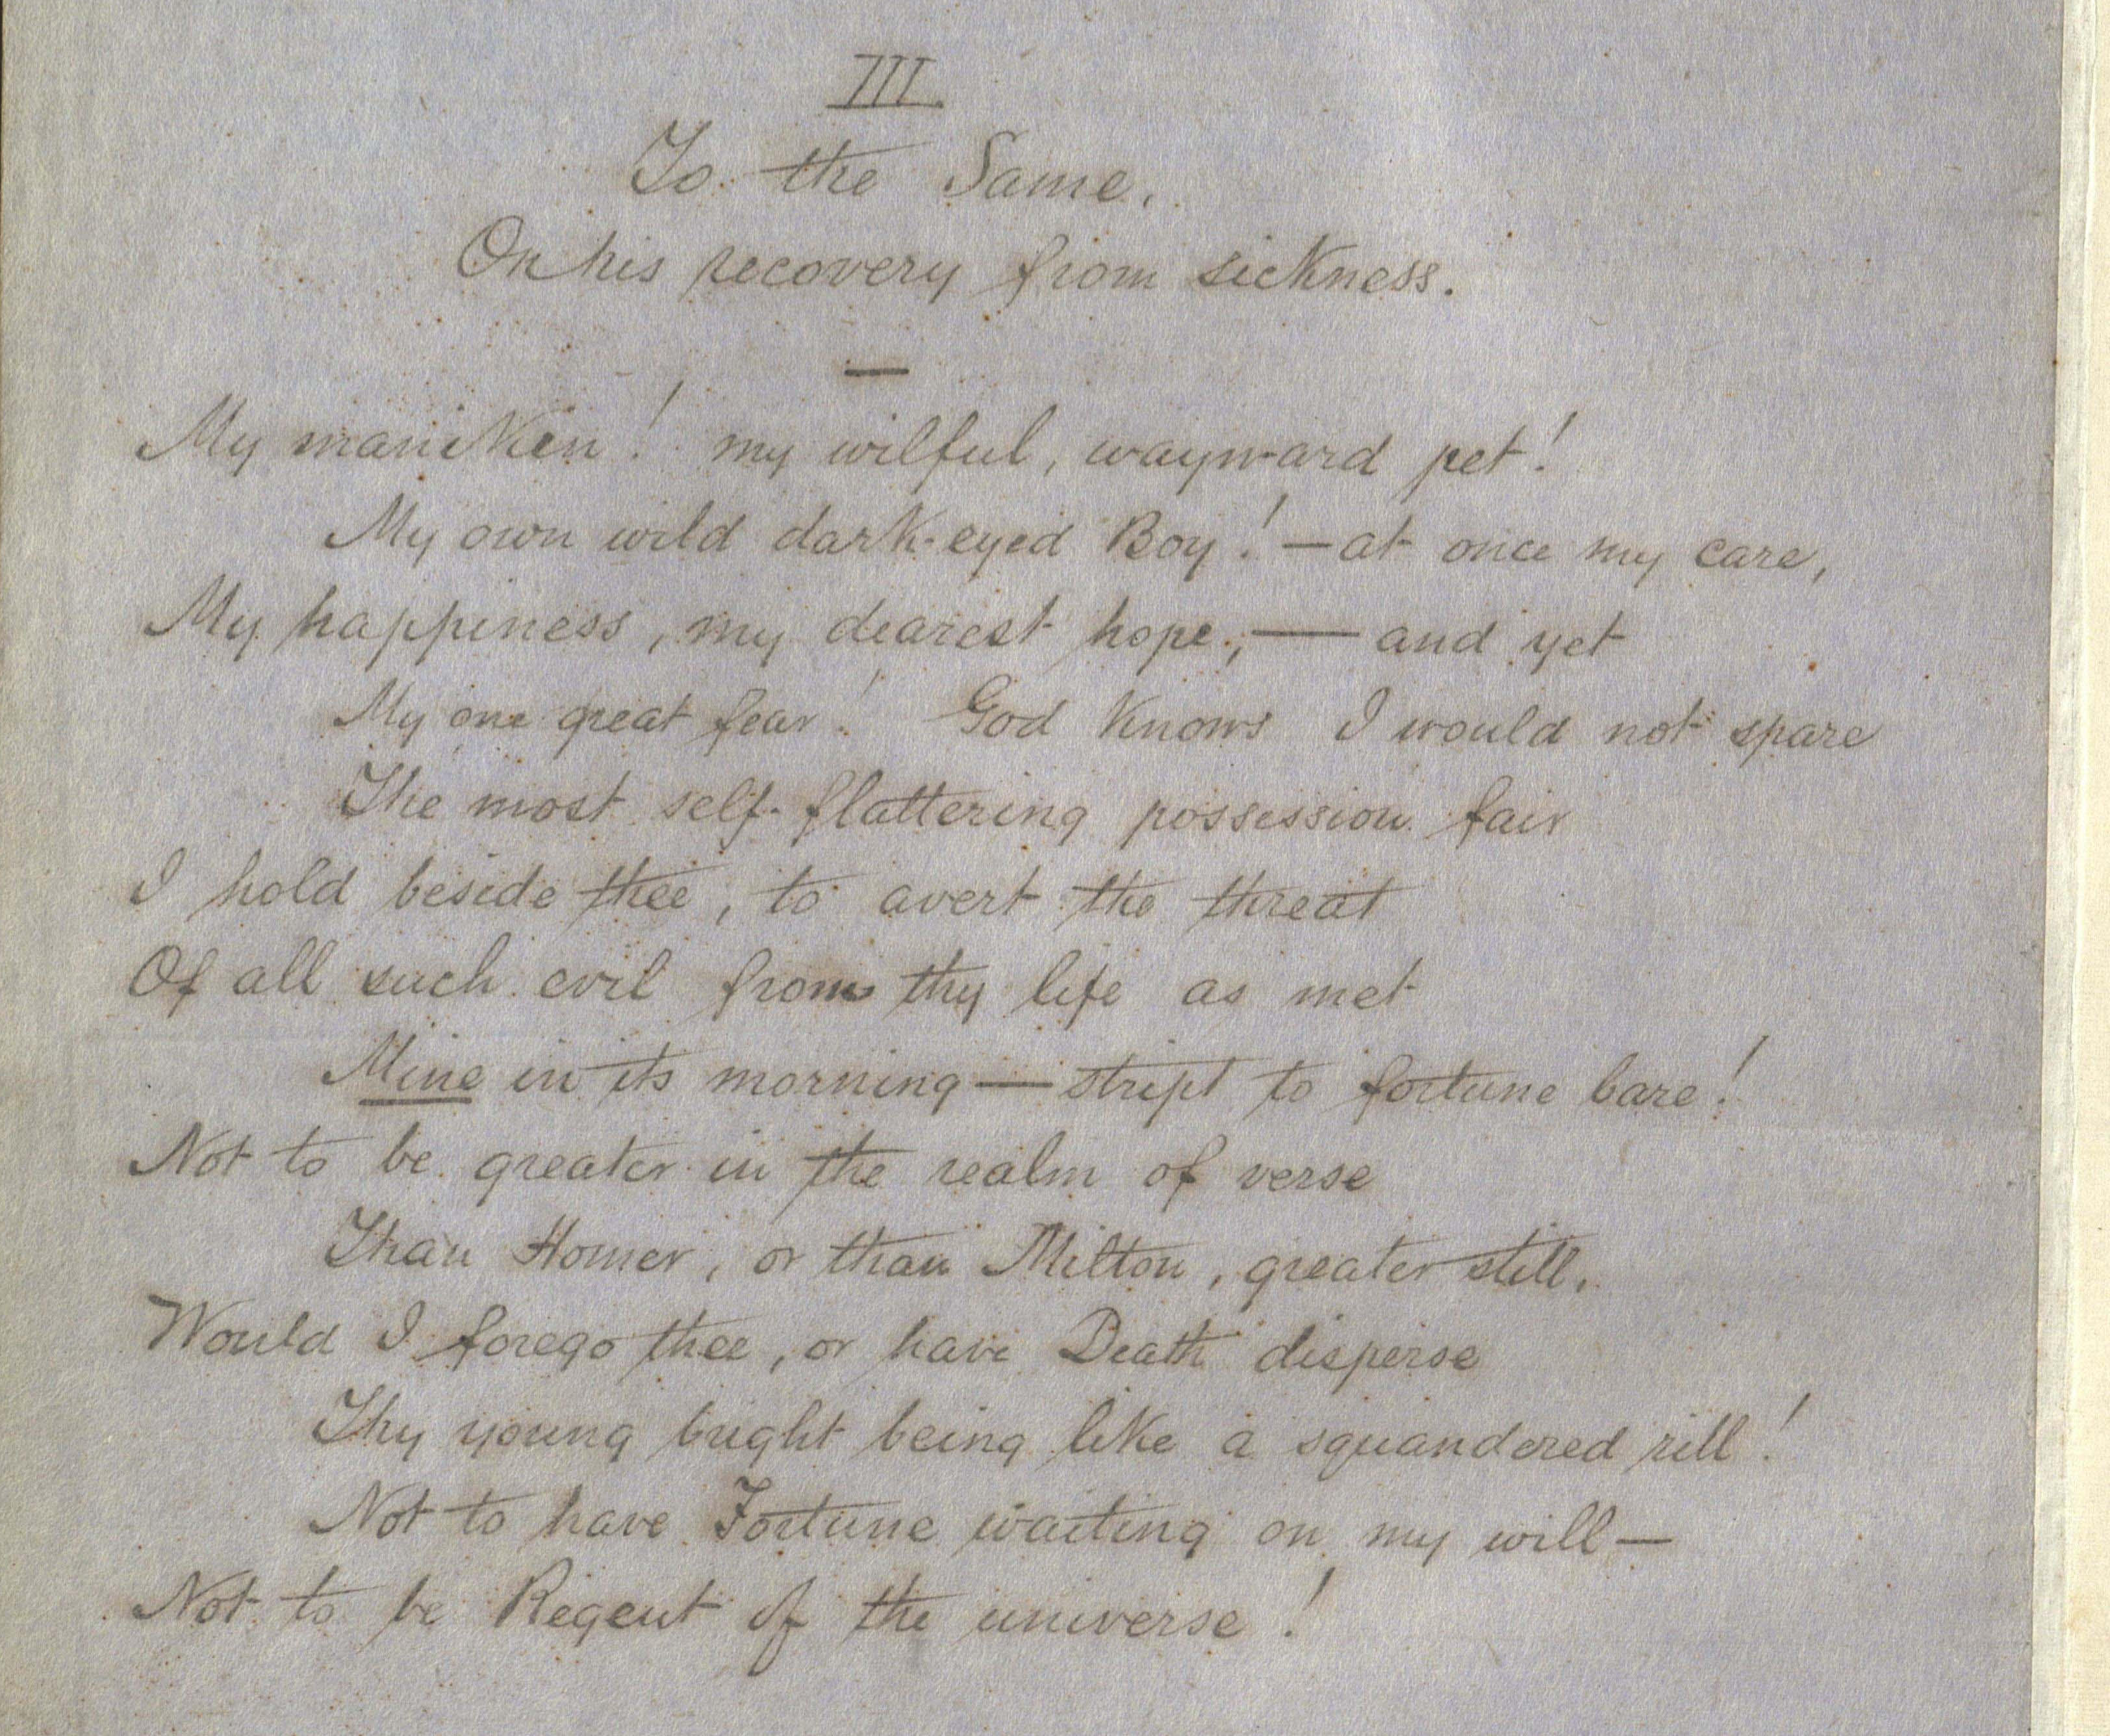 III
To the Same.
On his recovery from sickness.
—
My maniken! my wilful, wayward pet!
My own wild dark-eyed Boy! — at once my care,
My happiness, my dearest hope, — and yet
My one great fear! God knows I would not spare
The most self-flattering possession fair
I hold beside thee, to avert the threat
Of all such evil from thy life as met
Mine in its morning — stript to fortune bare!
Not to be greater in the realm of verse
Than Homer, or than Milton, greater still,
Would I forego thee, or have Death disperse
Thy young bright being like a squandered rill!
Not to have Fortune waiting on my will —
Not to be Regent of the universe!